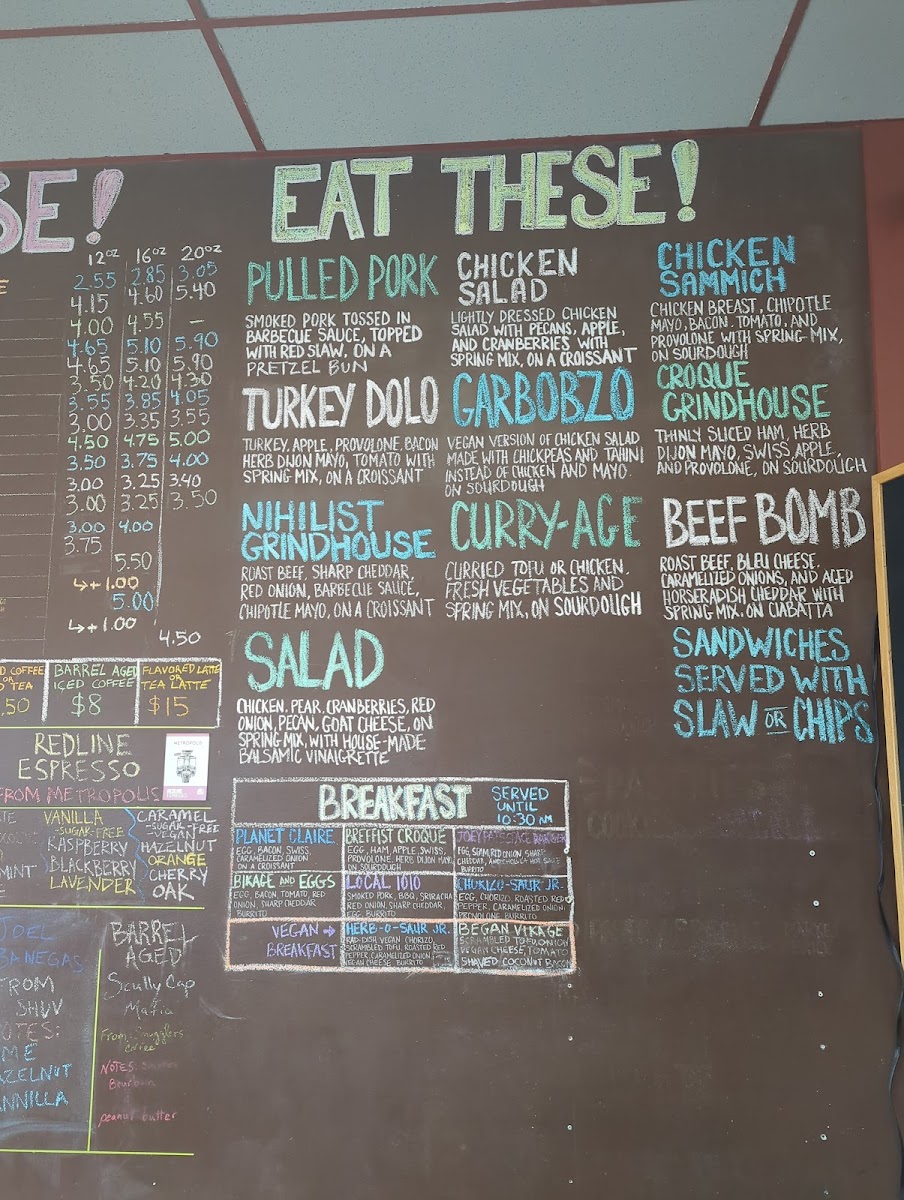 SE!
12oz 16oz 20oz
2.55 2.85 3.05
4.15 4.60 5.40
4.00 4.55 —
4.65 5.10 5.90
4.65 5.10 5.90
3.50 4.20 4.30
3.55 3.85 4.05
3.00 3.35 3.55
4.50 4.75 5.00
3.50 3.75 4.00
3.00 3.25 3.40
3.00 3.25 3.50
3.00 4.00
3.75
5.50
↳+1.00
5.00
↳+1.00
4.50
D COFFEE
OR
D TEA
.50
BARREL AGED
ICED COFFEE
$8
FLAVORED LATTE
OR
TEA LATTE
$15
REDLINE
ESPRESSO
FROM METROPOLIS
METROPOLIS
VANILLA
-SUGAR-FREE
RASPBERRY
BLACKBERRY
LAVENDER
MINT
CARAMEL
-SUGAR-FREE
VEGAN
HAZELNUT
ORANGE
CHERRY
OAK
JOEL
BANEGAS
FROM
SHUV
NOTES:
ME
AZELNUT
ANNILLA
BARREL
AGED
Scully Cap
Mafia
From Smugglers
Coffee
NOTES:
Bourbon
peanut butter
EAT THESE!
PULLED PORK
SMOKED PORK TOSSED IN
BARBECUE SAUCE, TOPPED
WITH RED SLAW, ON A
PRETZEL BUN
CHICKEN
SALAD
LIGHTLY DRESSED CHICKEN
SALAD WITH PECANS, APPLE,
AND CRANBERRIES WITH
SPRING MIX, ON A CROISSANT
CHICKEN
SAMMICH
CHICKEN BREAST, CHIPOTLE
MAYO, BACON. TOMATO, AND
PROVOLONE WITH SPRING MIX,
ON SOURDOUGH
TURKEY DOLO
TURKEY, APPLE, PROVOLONE, BACON
HERB DIJON MAYO, TOMATO WITH
SPRING MIX, ON A CROISSANT
GARBOBZO
VEGAN VERSION OF CHICKEN SALAD
MADE WITH CHICKPEAS AND TAHINI
INSTEAD OF CHICKEN AND MAYO
ON SOURDOUGH
CROQUE
GRINDHOUSE
THINLY SLICED HAM, HERB
DIJON MAYO, SWISS, APPLE,
AND PROVOLONE, ON SOURDOUGH
NIHILIST
GRINDHOUSE
ROAST BEEF, SHARP CHEDDAR,
RED ONION, BARBECUE SAUCE,
CHIPOTLE MAYO, ON A CROISSANT
CURRY-AGE
CURRIED TOFU OR CHICKEN,
FRESH VEGETABLES AND
SPRING MIX, ON SOURDOUGH
BEEF BOMB
ROAST BEEF, BLEU CHEESE,
CARAMELIZED ONIONS, AND AGED
HORSERADISH CHEDDAR WITH
SPRING MIX. ON CIABATTA
SALAD
CHICKEN, PEAR, CRANBERRIES, RED
ONION, PECAN, GOAT CHEESE, ON
SPRING MIX, WITH HOUSE-MADE
BALSAMIC VINAIGRETTE
SANDWICHES
SERVED WITH
SLAW OR CHIPS
BREAKFAST
SERVED
UNTIL
10:30 AM
PLANET CLAIRE
EGG, BACON, SWISS,
CARAMELIZED ONION
ON A CROISSANT
BREFFIST CROQUE
EGG, HAM, APPLE, SWISS,
PROVOLONE, HERB DIJON MAYO
ON SOURDOUGH
EGG, SPAM, RED ONION, SHARP
BURRITO
BIKAGE AND EGGS
EGG, BACON, TOMATO, RED
ONION, SHARP CHEDDAR
BURRITO
LOCAL 1010
SMOKED PORK, BBQ, SRIRACHA
RED ONION, SHARP CHEDDAR,
EGG, BURRITO
CHORIZO-SAUR JR.
EGG, CHORIZO, ROASTED RED
PEPPER, CARAMELIZED ONION
PROVOLONE BURRITO
VEGAN →
BREAKFAST
HERB-O-SAUR JR.
RAD-DISH VEGAN CHORIZO,
SCRAMBLED TOFU, ROASTED RED
PEPPER, CARAMELIZED ONION
VEGAN CHEESE, BURRITO
BEGAN VIKAGE
SCRAMBLED TOFU, ONION
VEGAN CHEESE, TOMATO
SHAVED COCONUT BACON